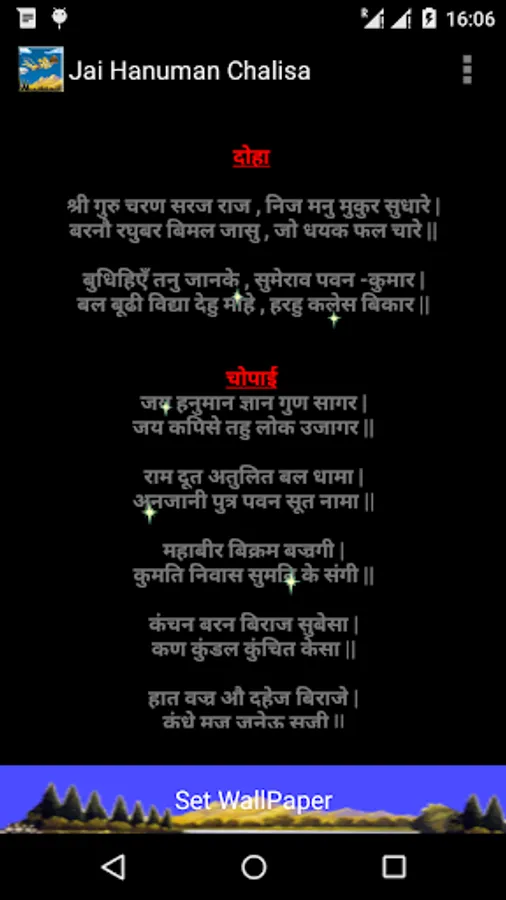 16:06
Jai Hanuman Chalisa
दोहा
श्री गुरु चरण सरज राज , निज मनु मुकुर सुधारे |
बरनौ रघुबर बिमल जासु , जो धयक फल चारे ||
बुधिहिएँ तनु जानके , सुमेराव पवन -कुमार |
बल बूढी विद्या देहु माहे , हरहु कलेस बिकार ||
चोपाई
जय हनुमान ज्ञान गुण सागर |
जय कपिसे तहु लोक उजागर ||
राम दूत अतुलित बल धामा |
अनजानी पुत्र पवन सूत नामा ||
महाबीर बिक्रम बज्रगी |
कुमति निवास सुमति के संगी ||
कंचन बरन बिराज सुबेसा |
कण कुंडल कुंचित केसा ||
हात वज्र औ दहेज बिराजे |
कंधे मुज जनेऊ सजी ||
Set WallPaper